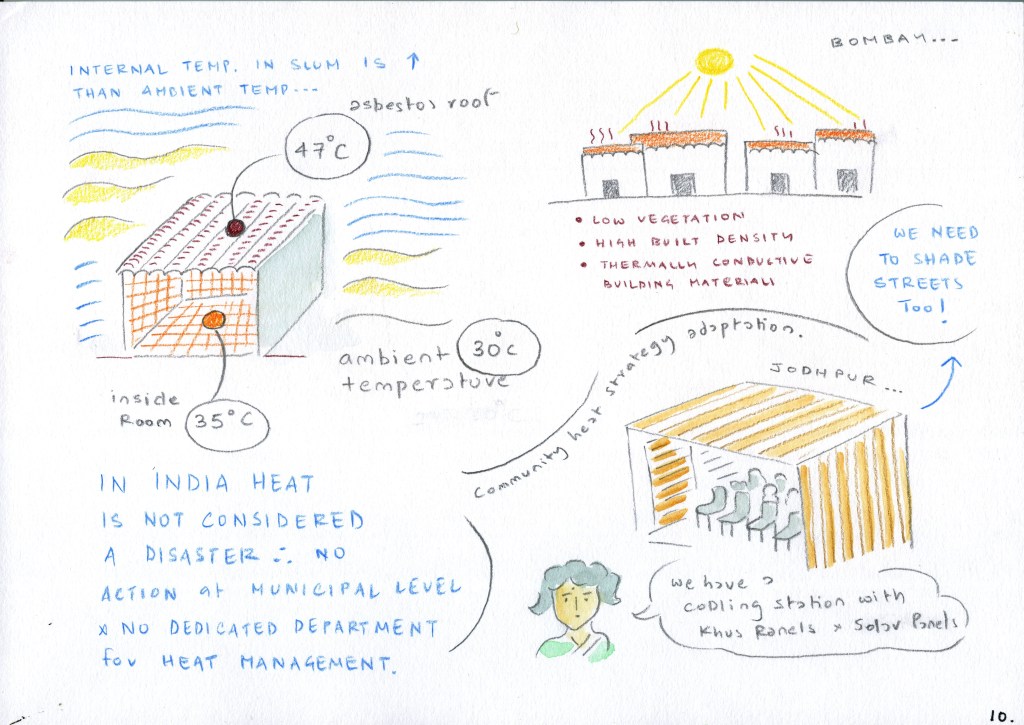 INTERNAL TEMP. IN SLUM IS ↑
THAN AMBIENT TEMP...
asbestos roof
47°C
ambient
temperature
30°C
inside
Room
35°C
IN INDIA HEAT
IS NOT CONSIDERED
A DISASTER ∴ NO
ACTION at MUNICIPAL LEVEL
x NO DEDICATED DEPARTMENT
for HEAT MANAGEMENT.
BOMBAY...
• LOW VEGETATION
• HIGH BUILT DENSITY
• THERMALLY CONDUCTIVE
BUILDING MATERIALS
WE NEED
TO SHADE
STREETS
TOO!
Community heat strategy adaptation.
JODHPUR...
we have a
cooling station with
Khus Panels x Solar Panels
10.